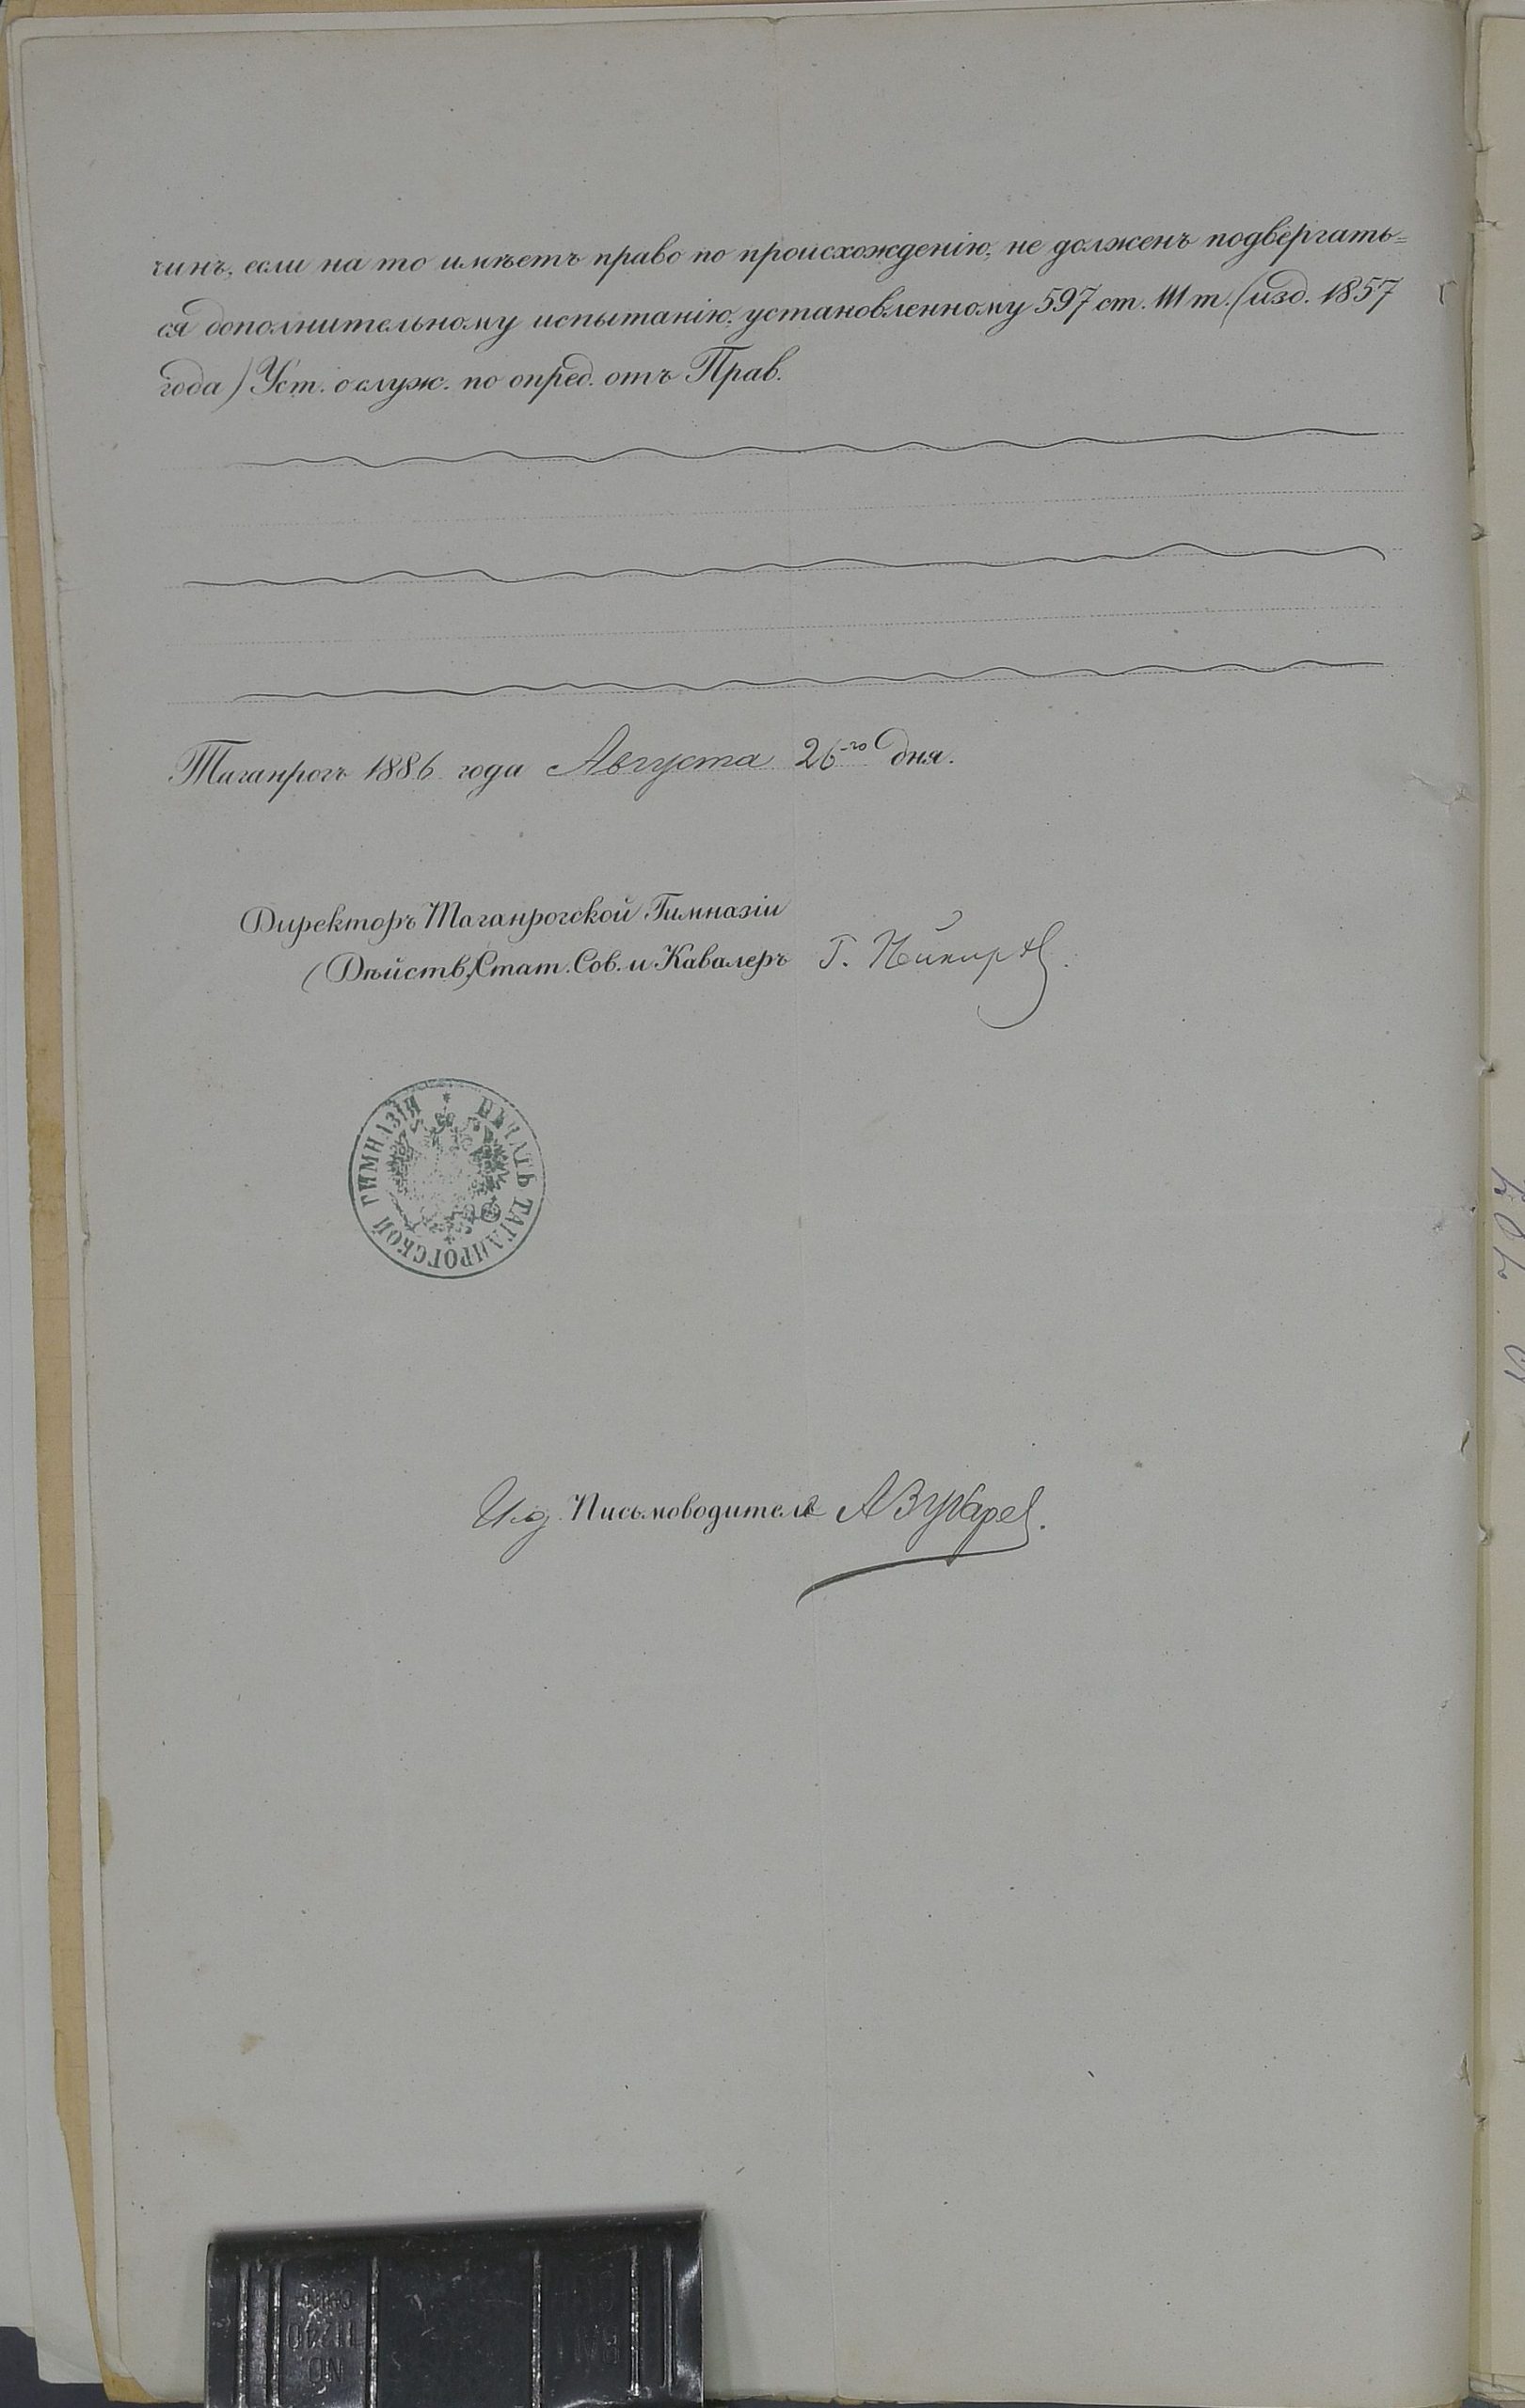 чинъ, если на то имѣетъ право по происхожденію, не долженъ подвергать=
ся дополнительному испытанію, установленному 597 ст. III т. (изд. 1857
года) Уст. о служ. по опред. отъ Прав.
Таганрогъ 1886 года Августа 26-го дня.
Директоръ Таганрогской Гимназіи
(Дѣйств.) Стат. Сов. и Кавалеръ Г.
ПЕЧАТЬ ТАГАНРОГСКОЙ ГИМНАЗІЯ
И.д. Письмоводителя А Зубарев.